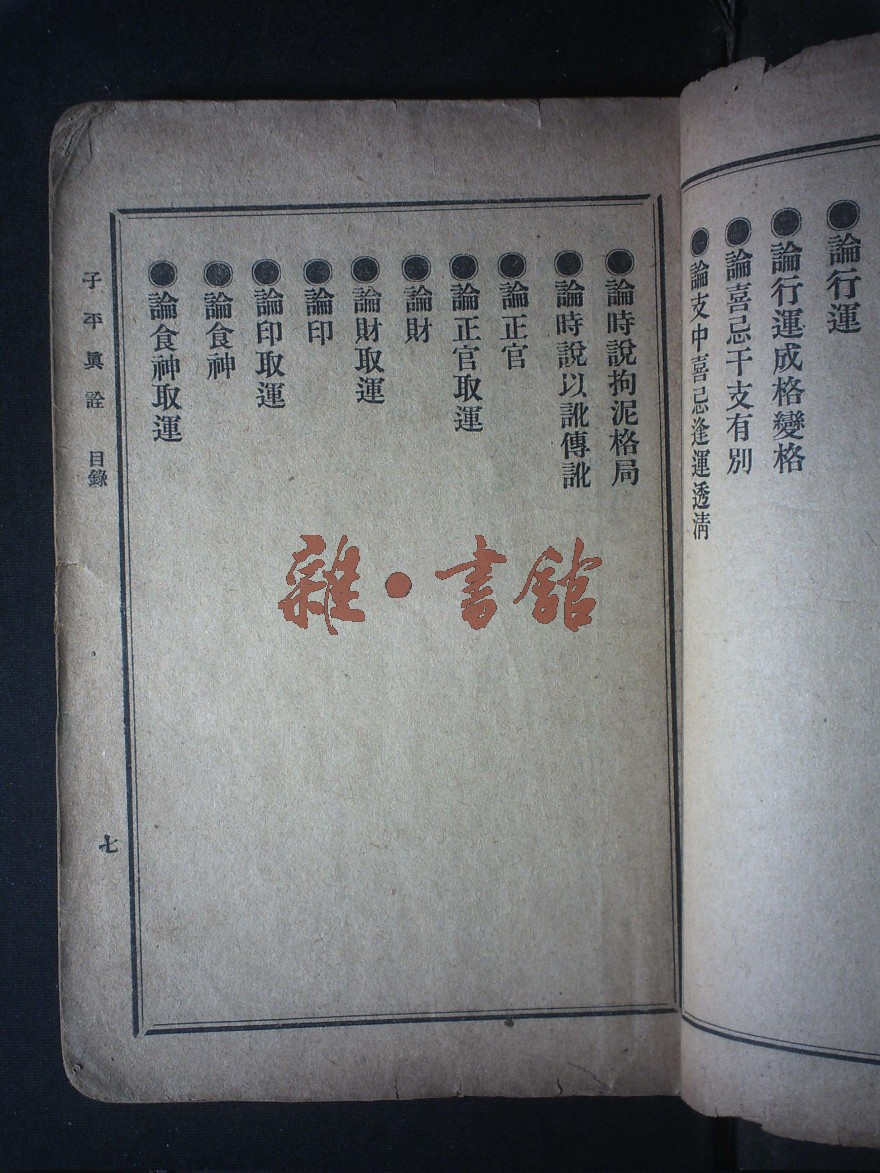 ●論行運
●論行運成格變格
●論喜忌干支有別
●論支中喜忌逢運透清
●論時說拘泥格局
●論時說以訛傳訛
●論正官
●論正官取運
●論財
●論財取運
●論印
●論印取運
●論食神
●論食神取運
子平眞詮 目錄
七
雜·書館